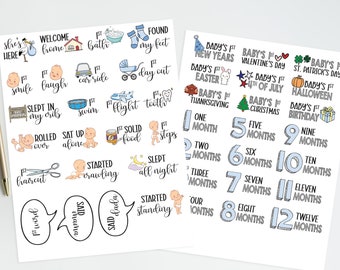 she's
HERE
WELCOME
home
1st
bath
FOUND
my feet
1st
smile
1st
laugh
1st
car ride
1st
day out
SLEPT
in my crib
1st
swim
1st
flight
1st
tooth
ROLLED
over
SAT UP
alone
1st SOLID
food
1st
steps
1st
haircut
STARTED
crawling
SLEPT
all night
1st word
SAID
mama
SAID dada
STARTED
standing
BABY'S 1st
NEW YEARS
BABY'S 1st
VALENTINE'S DAY
BABY'S 1st
ST. PATRICK'S DAY
BABY'S 1st
EASTER
BABY'S 1st
4TH OF JULY
BABY'S 1st
HALLOWEEN
BABY'S 1st
THANKSGIVING
BABY'S 1st
CHRISTMAS
BABY'S 1st
BIRTHDAY
1 ONE
MONTH
5 FIVE
MONTHS
9 NINE
MONTHS
TWO
MONTHS
6 SIX
MONTHS
10 TEN
MONTHS
THREE
MONTHS
7 SEVEN
MONTHS
11 ELEVEN
MONTHS
OUR
MONTHS
8 EIGHT
MONTHS
12 TWELVE
MONTHS